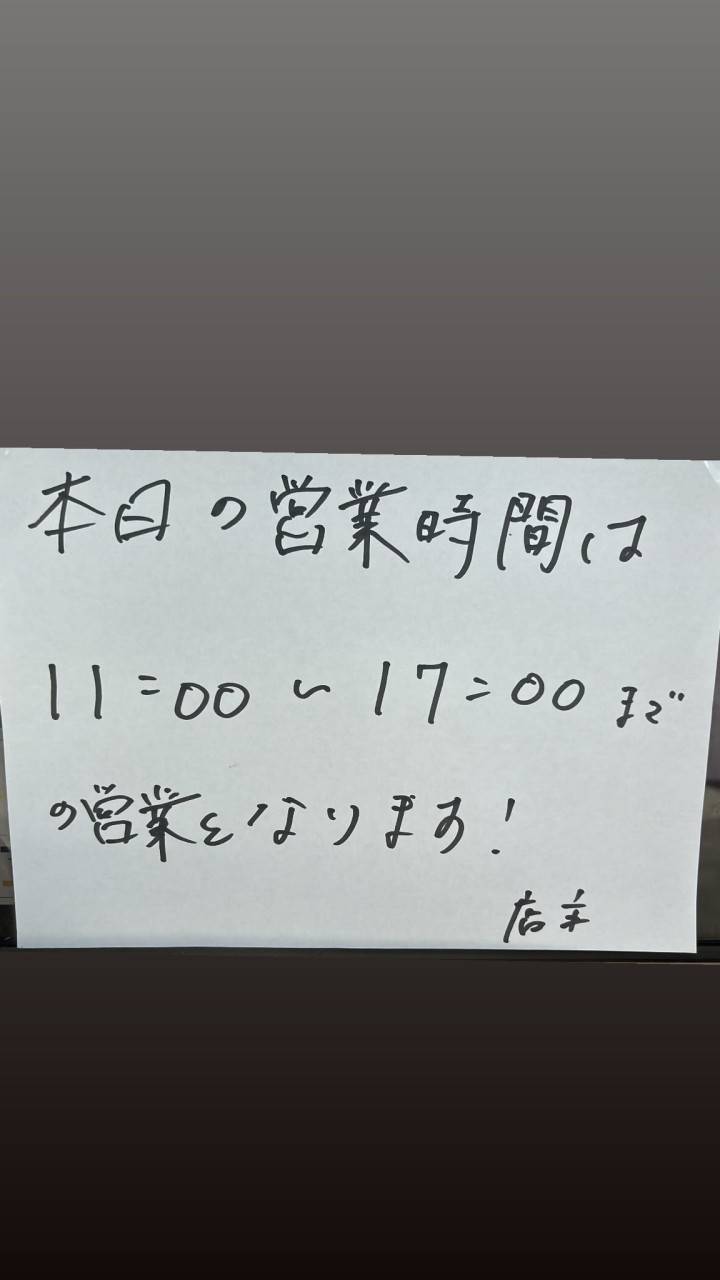 本日の営業時間は
11:00〜17:00まで
の営業となります!
店主